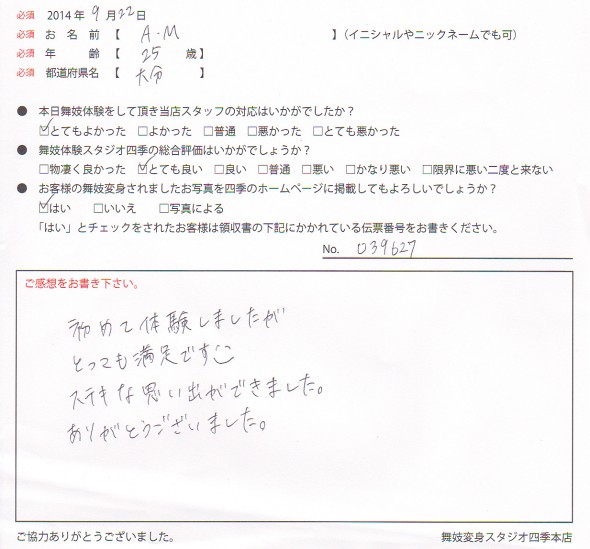 必須 2014年 9月22日
必須 お名前【 A.M 】(イニシャルやニックネームでも可)
必須 年齢【 25 歳】
必須 都道府県名【 大分 】
● 本日舞妓体験をして頂き当店スタッフの対応はいかがでしたか?
☑とてもよかった □よかった □普通 □悪かった □とても悪かった
● 舞妓体験スタジオ四季の総合評価はいかがでしょうか?
□物凄く良かった ☑とても良い □良い □普通 □悪い □かなり悪い □限界に悪い二度と来ない
● お客様の舞妓変身されましたお写真を四季のホームページに掲載してもよろしいでしょうか?
☑はい □いいえ □写真による
「はい」とチェックをされたお客様は領収書の下記にかかれている伝票番号をお書きください。
No. 039627
ご感想をお書き下さい。
初めて体験しましたが
とっても満足です
ステキな思い出ができました。
ありがとうございました。
ご協力ありがとうございました。 舞妓変身スタジオ四季本店